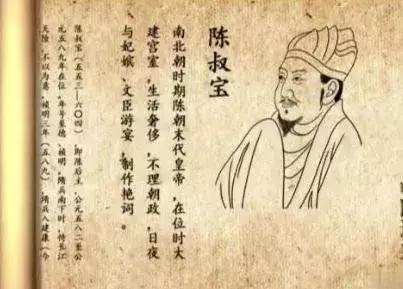 陈叔宝
南北朝时期陈朝末代皇帝，在位时大
建宫室，生活奢侈，不理朝政，日夜
与妃嫔、文臣游宴，制作艳词。
陈叔宝（五五三—六〇四） 即陈后主，公元五八二至公
元五八九年在位，年号至德、祯明。隋兵南下时，恃长江
天险，不以为意。祯明三年（五八九），隋兵入建康（今